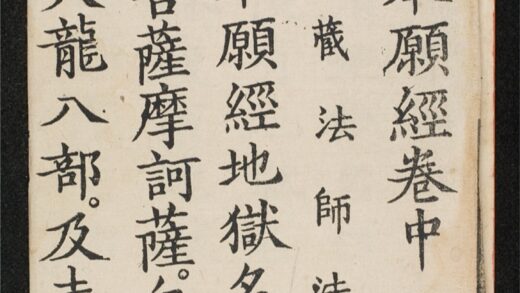 願經卷中
藏法師法
願經地獄名
菩薩摩訶薩。
龍八部。及